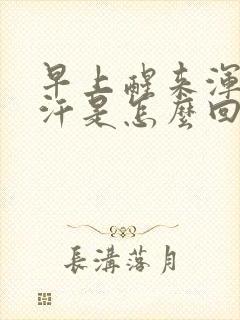 早上醒来渾
汗是怎麼回
長溝落月